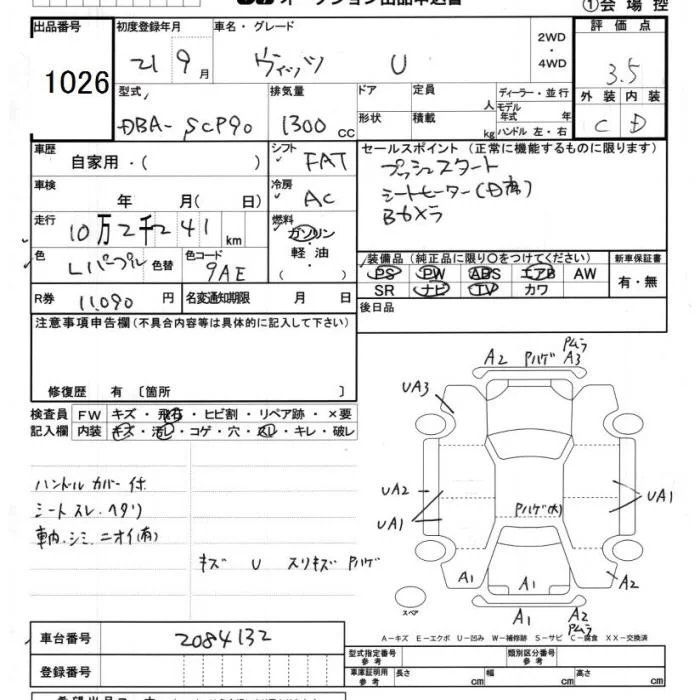 オークション出品申込書
①会場控
出品番号 初度登録年月 車名・グレード 評価点
1026 21 9月 ヴィッツ U 2WD・4WD 3.5
型式 排気量 ドア 定員 人 ディーラー・並行 外装 内装
DBA-SCP90 1300 CC 形状 積載 kg モデル年式 年 ハンドル 左・右 C D
車歴 自家用・( ) シフト FAT セールスポイント(正常に機能するものに限ります)
プッシュスタート
車検 年 月( 日) 冷房 AC シートヒーター(D席)
Bカメラ
走行 10万2千241km 燃料 ガソリン 軽油 ( )
色 Lパープル 色替 色コード 9AE
装備品(純正品に限り○をつけてください) 新車保証書
PS PW ABS エアB AW 有・無
SR ナビ TV カワ
R券 11,090円 名変通知期限 月 日 後日品
注意事項申告欄(不具合内容等は具体的に記入して下さい)
修復歴 有 〔箇所 〕
検査員 FW キズ・飛石・ヒビ割・リペア跡・×要
記入欄 内装 キズ・汚レ・コゲ・穴・スレ・キレ・破レ
ハンドルカバー付
シートスレ・ヘタリ
車内・シミ・ニオイ(有)
キズ U スリキズ Pハゲ
A2 Pハゲ Pムラ A3
UA3
UA2
UA1
Pハゲ(大)
UA1
A1 A1 A2
スペア
A1 A2 Pムラ
A-キズ E-エクボ U-凹み W-補修跡 S-サビ C-腐食 XX-交換済
車台番号 2084132
型式指定番号 参考 類別区分番号 参考
登録番号 車庫証明用 参考 長さ cm 幅 cm 高さ cm